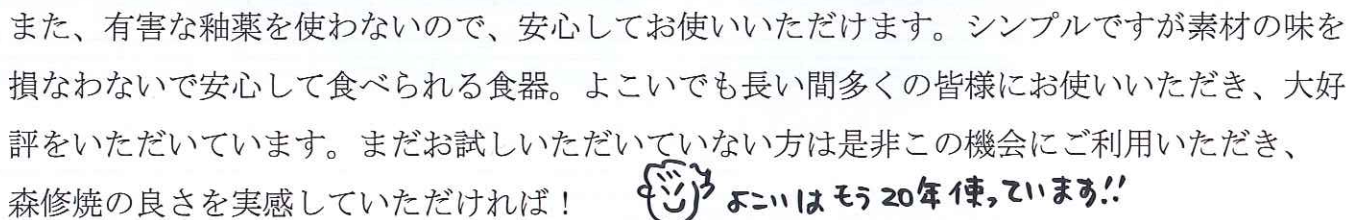 また、有害な釉薬を使わないので、安心してお使いいただけます。シンプルですが素材の味を
損なわないで安心して食べられる食器。よこいでも長い間多くの皆様にお使いいただき、大好
評をいただいています。まだお試しいただいていない方は是非この機会にご利用いただき、
森修焼の良さを実感していただければ！ よこいはもう20年使っています!!